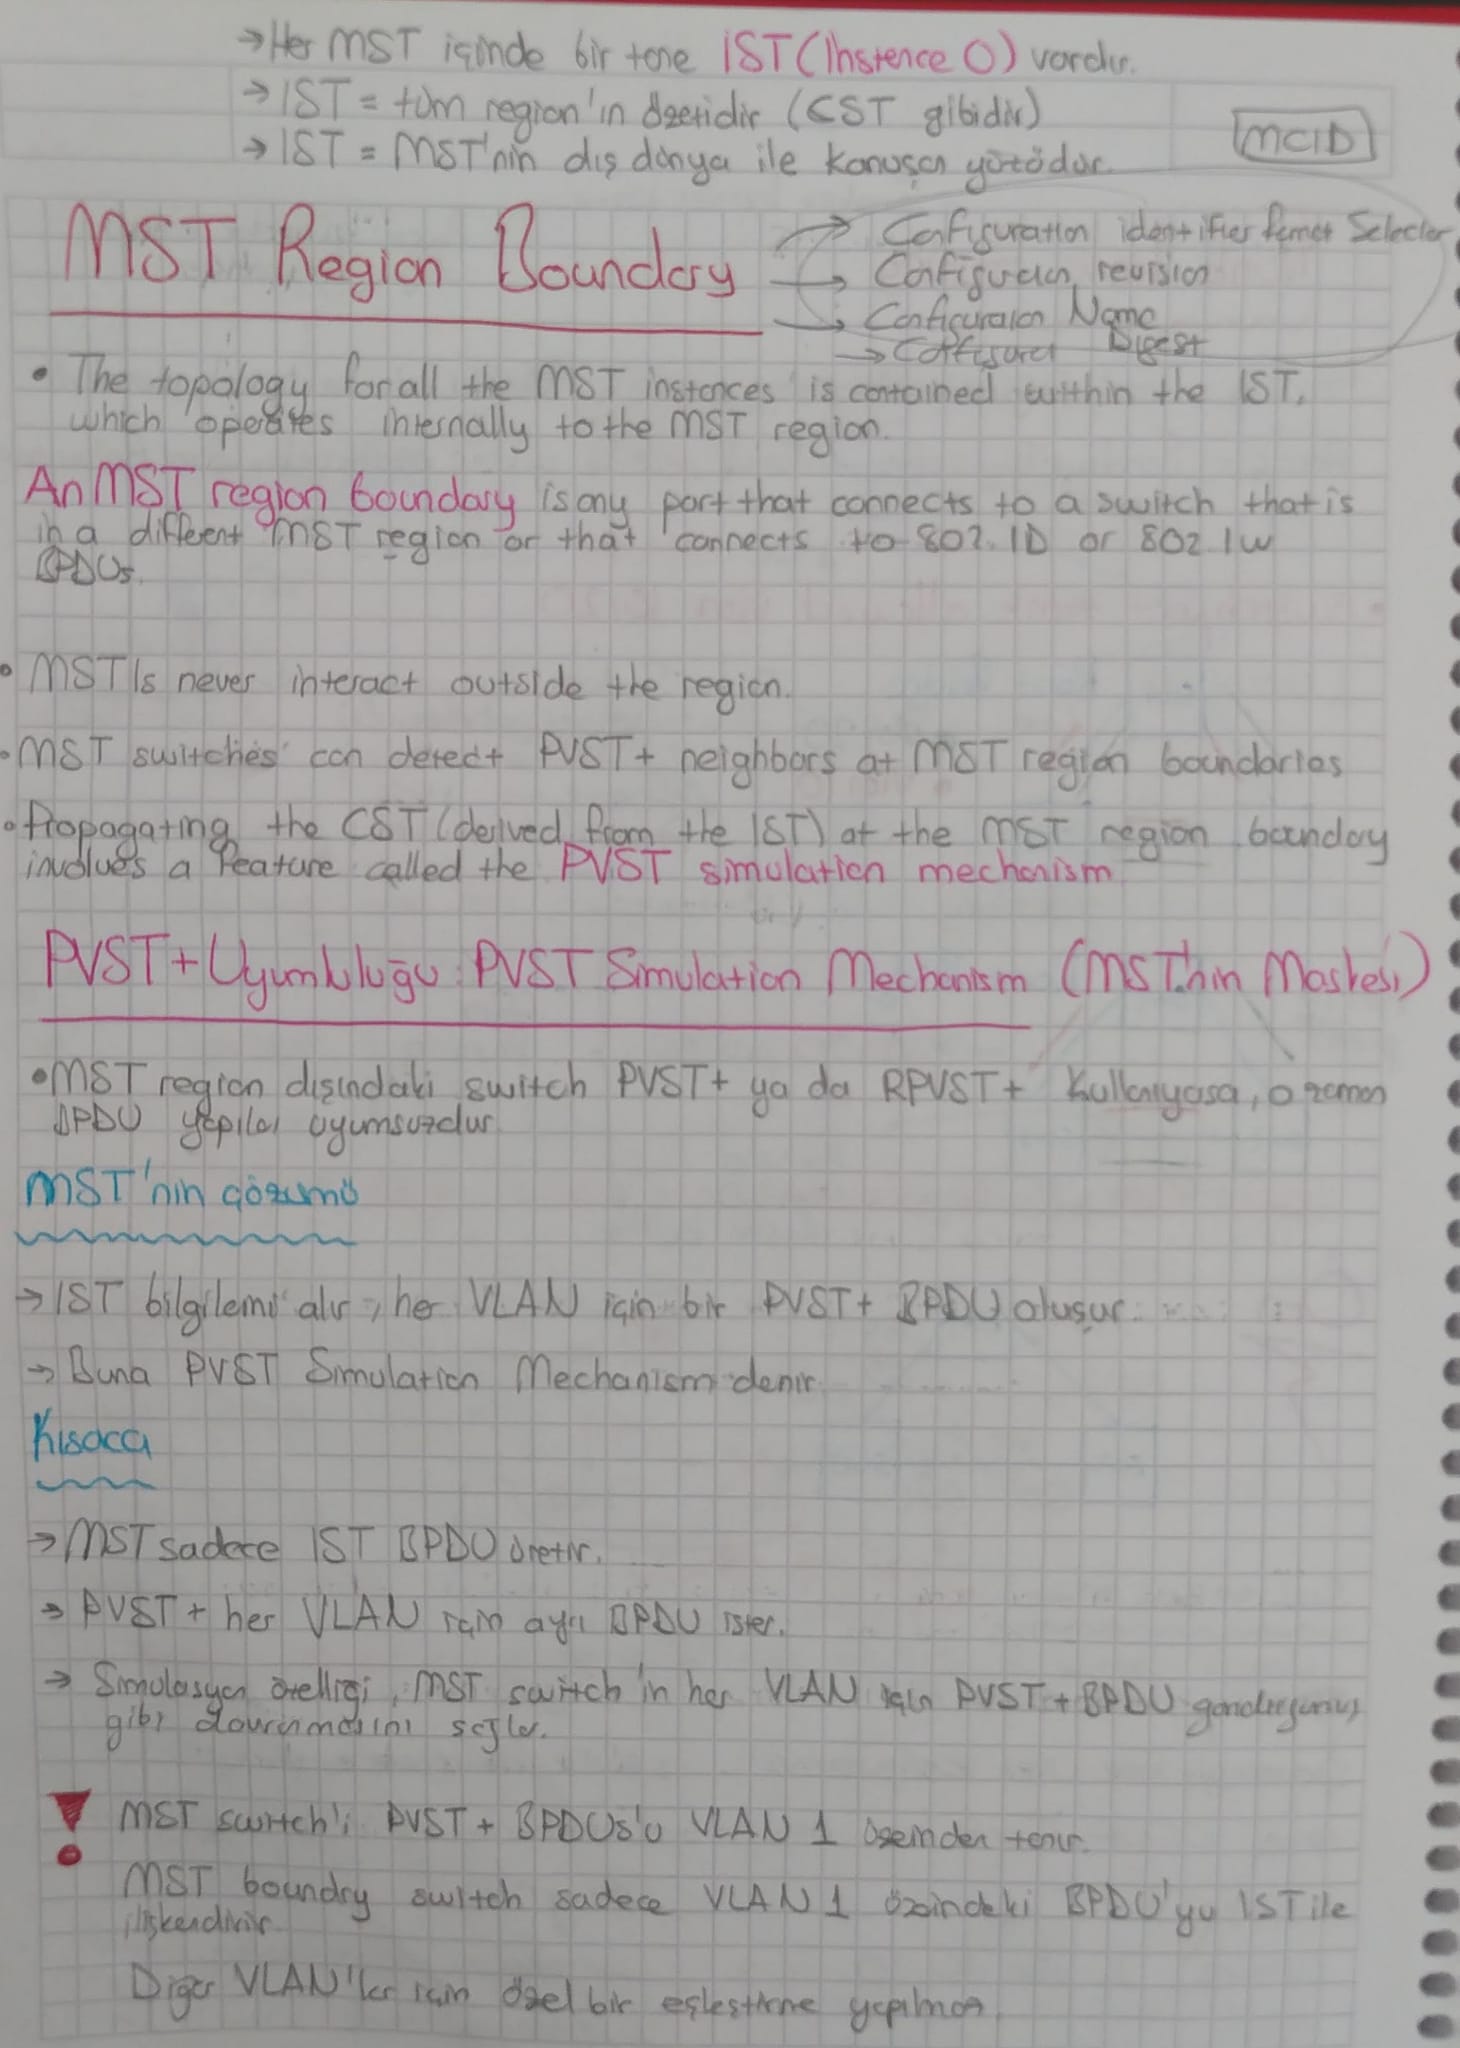 → Her MST içinde bir tane IST (Instence 0) vardır.
→ IST = tüm region'ın özetidir (CST gibidir)
→ IST = MST'nin dış dünya ile konuşan yüzüdür.
MCID
MST Region Boundary
→ Configuration identifier format Selector
→ Configuraion revision
→ Configuraion Name
→ Digest
• The topology for all the MST instances is contained within the IST,
which operates internally to the MST region.
An MST region boundary is any port that connects to a switch that is
in a different MST region or that connects to 802.1D or 802.1w
BPDUs.
• MSTIs never interact outside the region.
• MST switches can detect PVST+ neighbors at MST region boundaries
• Propagating the CST (derived from the IST) at the MST region boundary
involves a feature called the PVST simulation mechanism
PVST+ Uyumluluğu: PVST Simulation Mechanism (MST'nin Maskesi)
• MST region dışındaki switch PVST+ ya da RPVST+ kullanıyasa, o zaman
BPDU yapıları uyumsuzdur.
MST'nin çözümü
→ IST bilgilerini alır, her VLAN için bir PVST+ BPDU oluşur.
→ Buna PVST Simulation Mechanism denir
Kısaca
→ MST sadece IST BPDU üretir.
→ PVST+ her VLAN için ayrı BPDU ister.
→ Simulasyon özelliği, MST switch'in her VLAN için PVST+ BPDU
gibi davranmasını sağlar.
! MST switch'i PVST+ BPDUs'u VLAN 1 üzerinden tanır.
MST boundry switch sadece VLAN 1 özerindeki BPDU'yu IST ile
ilişkendirir.
Diğer VLAN'lar için özel bir eşleştirme yapılmaz.